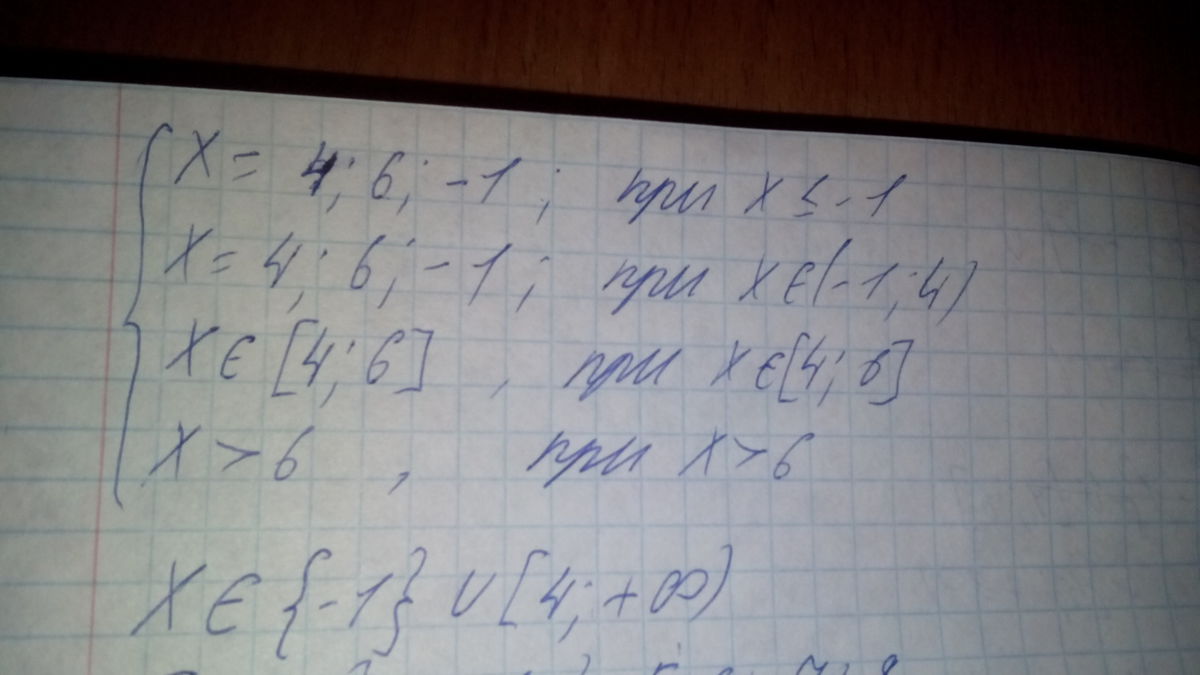 X = 4; 6; -1; при X ≤ -1
X = 4; 6; -1; при X ∈ (-1; 4)
X ∈ [4; 6] , при X ∈ [4; 6]
X > 6 , при X > 6
X ∈ {-1} ∪ [4; +∞)